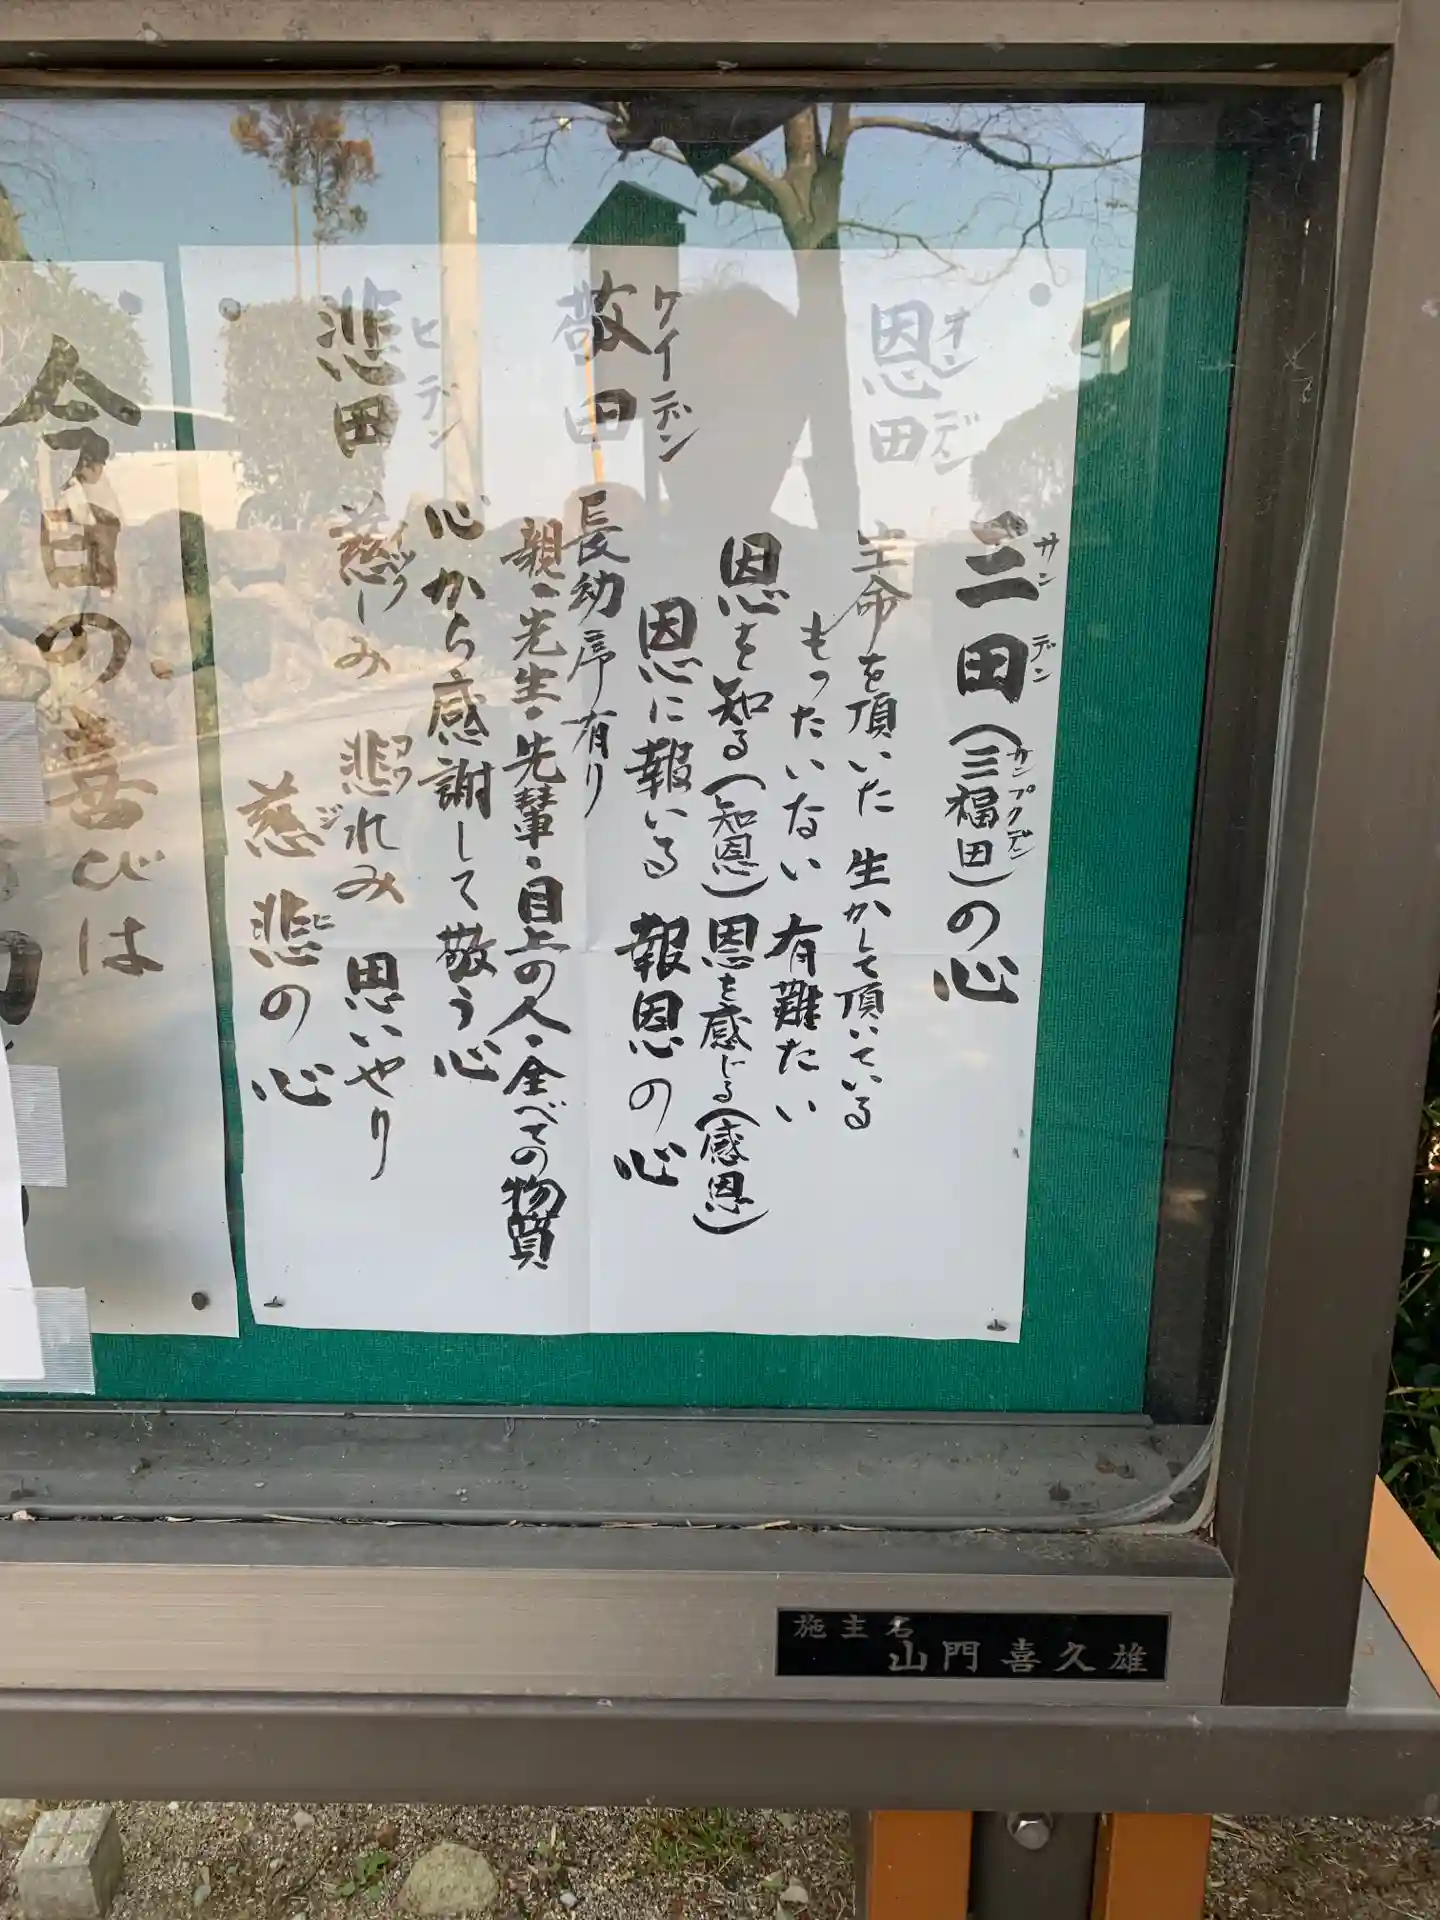 三田(三福田)の心
サンデン
サンプクデン
恩田
オンデン
生命を頂いた 生かして頂いている
もったいない 有難たい
恩を知る(知恩)恩を感じる(感恩)
恩に報いる 報恩の心
敬田
ケイデン
長幼序有り
親・先生・先輩・目上の人・全べての物質
心から感謝して敬う心
悲田
ヒデン
慈しみ 悲れみ 思いやり
イツク
アワ
慈悲の心
ジヒ
今日の喜びは
施主名
山門喜久雄